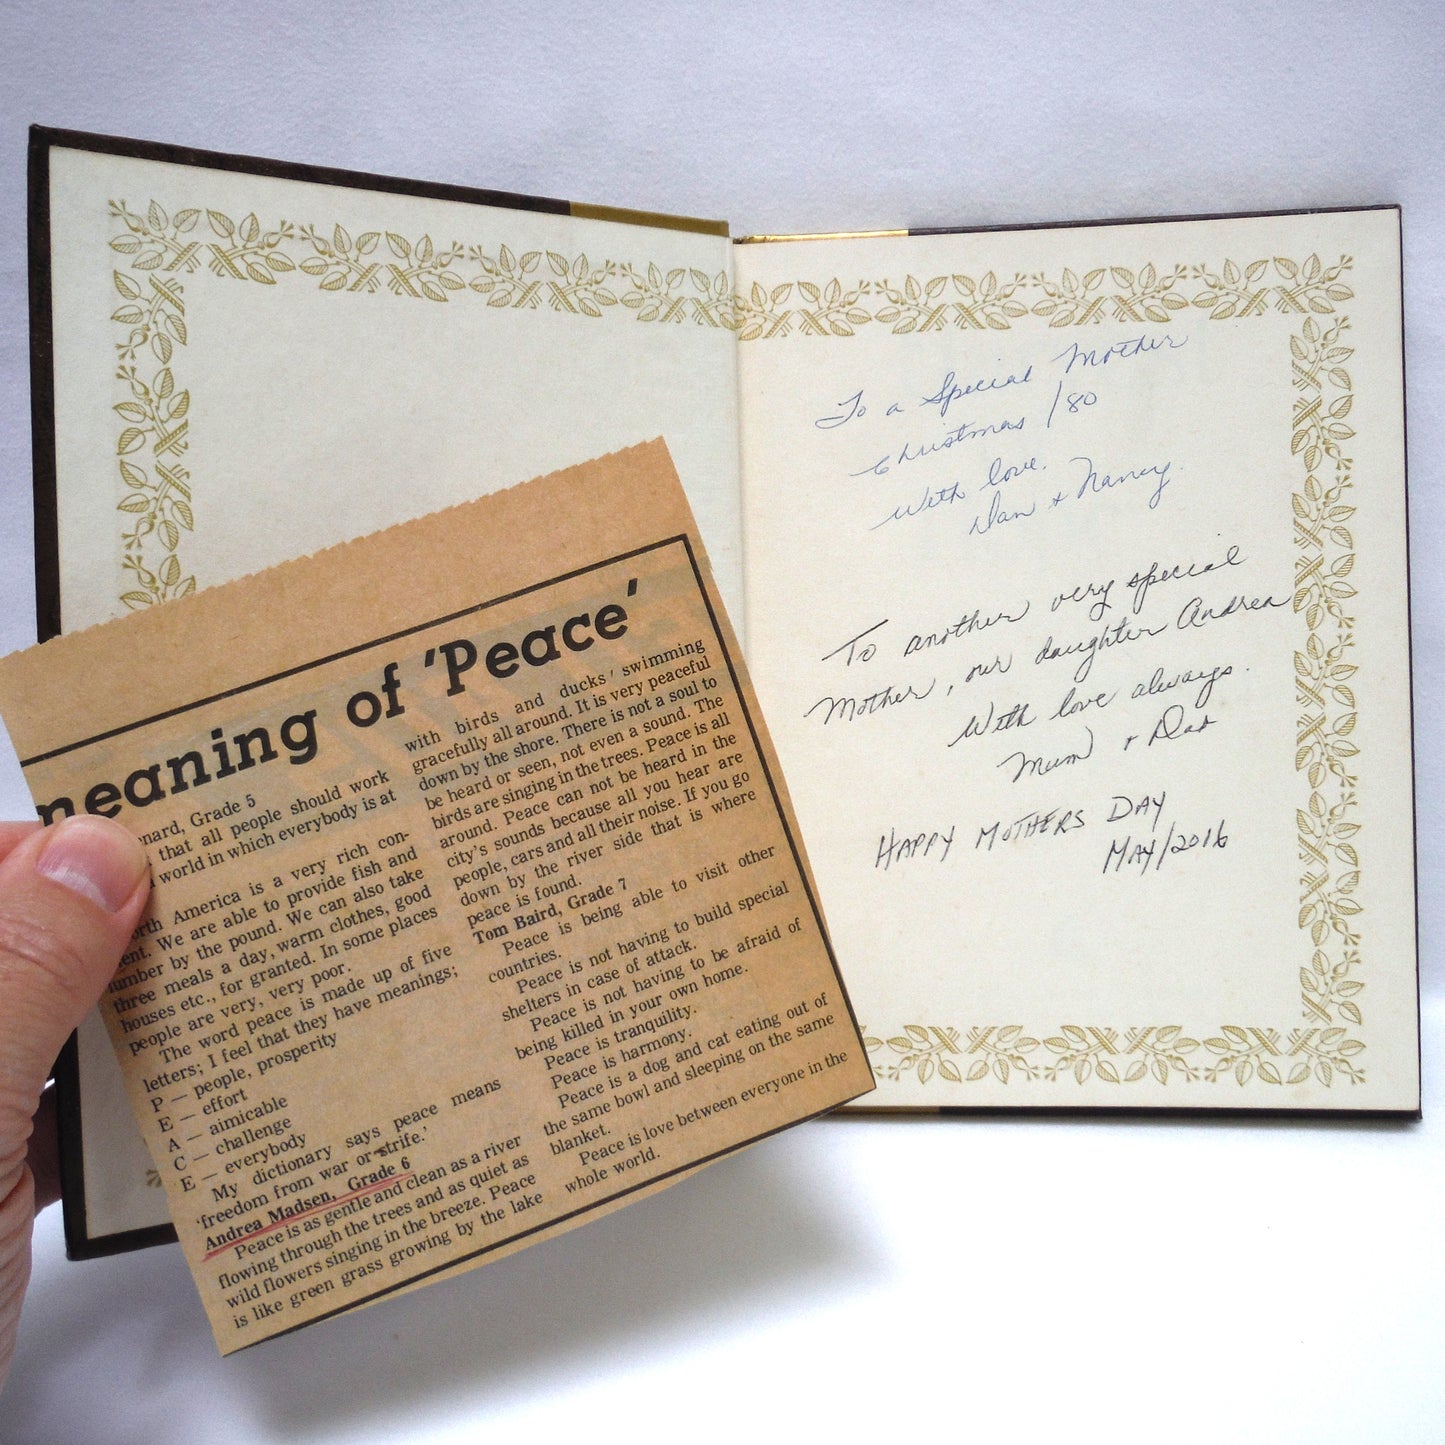 meaning of 'Peace'
nnard, Grade 5
that all people should work
world in which everybody is at
orth America is a very rich con-
ent. We are able to provide fish and
lumber by the pound. We can also take
three meals a day, warm clothes, good
houses etc., for granted. In some places
people are very, very poor.
The word peace is made up of five
letters; I feel that they have meanings;
P — people, prosperity
E — effort
A — aimicable
C — challenge
E — everybody
My dictionary says peace means
'freedom from war or strife.'
Andrea Madsen, Grade 6
Peace is as gentle and clean as a river
flowing through the trees and as quiet as
wild flowers singing in the breeze. Peace
is like green grass growing by the lake
with birds and ducks swimming
gracefully all around. It is very peaceful
down by the shore. There is not a soul to
be heard or seen, not even a sound. The
birds are singing in the trees. Peace is all
around. Peace can not be heard in the
city's sounds because all you hear are
people, cars and all their noise. If you go
down by the river side that is where
peace is found.
Tom Baird, Grade 7
Peace is being able to visit other
countries.
Peace is not having to build special
shelters in case of attack.
Peace is not having to be afraid of
being killed in your own home.
Peace is tranquility.
Peace is harmony.
Peace is a dog and cat eating out of
the same bowl and sleeping on the same
blanket.
Peace is love between everyone in the
whole world.
To a Special Mother
Christmas /80
With love.
Dan & Nancy.
To another very special
Mother, our daughter Andrea
With love always.
Mum & Dad
HAPPY MOTHERS DAY
MAY/2016